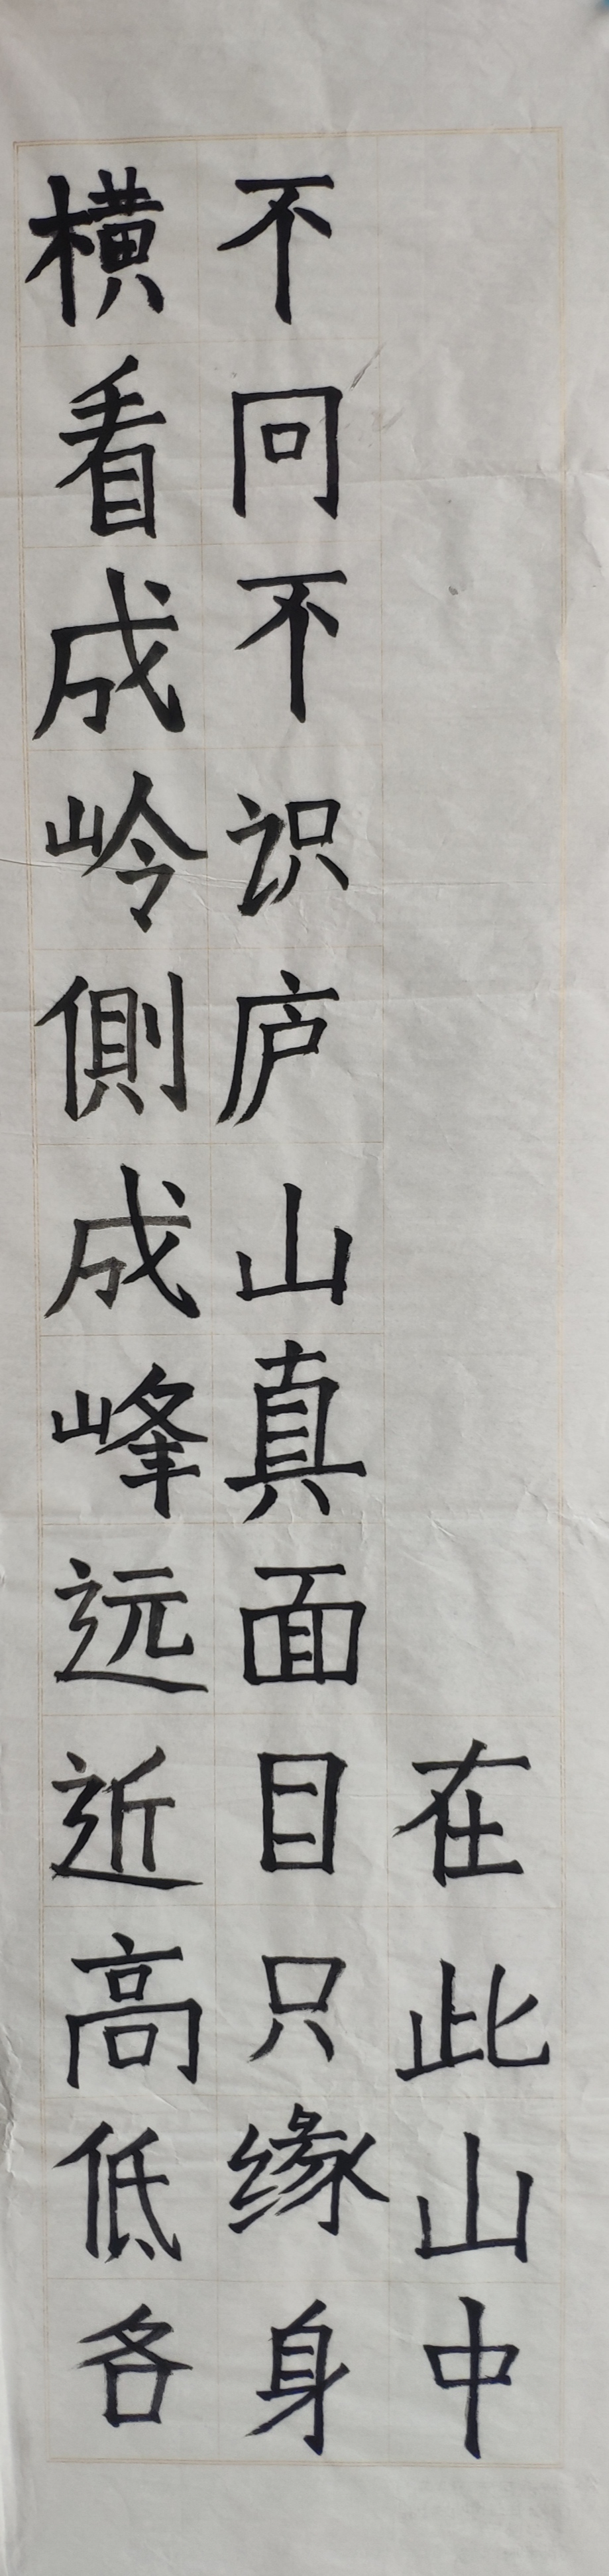 横看成岭側成峰远近高低各
不同不识庐山真面目只缘身
在此山中